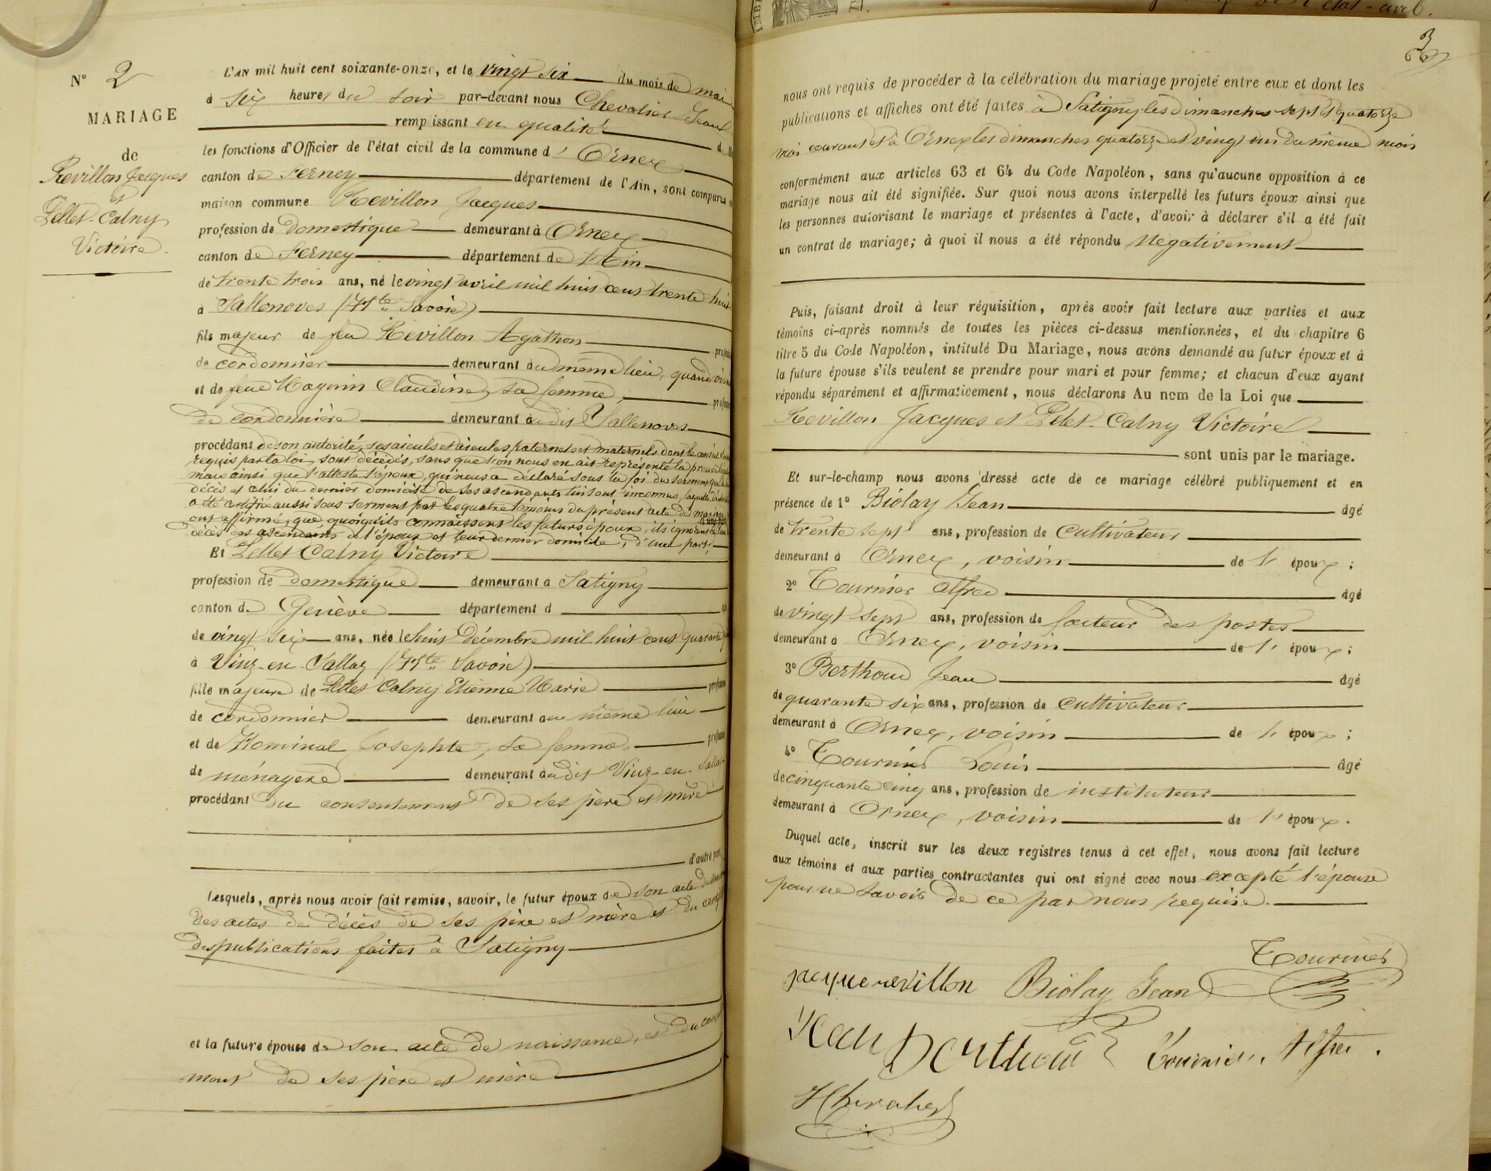 N° 2
MARIAGE
de
Revillon Jacques
et
Pellet-Calny
Victoire.
L'AN mil huit cent soixante-onze, et le vingt six du mois de mai
à six heures du soir par-devant nous Chevalier Jean
remplissant en qualité
les fonctions d'Officier de l'état civil de la commune d' Ornex
canton de Ferney département de l'Ain, sont comparus en
maison commune Revillon Jacques
profession de Domestique demeurant à Ornex
canton de Ferney département de l'Ain
de trente trois ans, né le vingt avril mil huit cent trente huit
à Sallenoves (Hte Savoie)
fils majeur de feu Revillon Agathon
de cordonnier demeurant au même lieu, quand
et de feue Claudine, sa femme,
de cordonnière demeurant au dit Sallenoves
procédant de son autorité, ses aieuls et aieules paternels et maternels dont le
requis par la loi, sont décédés, sans que l'on nous en ait représenté la preuve
mais ainsi que l'atteste l'époux, qui nous a déclaré sous la foi du serment que le
décès et celui du dernier domicile de ses ascendants lui sont inconnus,
a été certifié aussi sous serment par les quatre témoins du présent acte de mariage
ont affirmé, que quoiqu'ils connaissent les futurs époux, ils ignorent le
décès des ascendants de l'époux et leur dernier domicile; d'une part;
Et Pellet Calny Victoire
profession de domestique demeurant à Satigny
canton de Genève département d
de vingt six ans, née le huit Décembre mil huit cent quarante
à Viuz-en-Sallaz (Hte Savoie)
fille majeure de Pellet Calny Etienne Marie
de cordonnier demeurant au même lieu
et de Josephte, sa femme,
de ménagère demeurant au dit Viuz-en-Sallaz
procédant du consentement de ses père et mère
d'autre part
Lesquels, après nous avoir fait remise, savoir, le futur époux de son acte de
des actes de décès de ses père et mère et du
des publications faites à Satigny
et la future épouse de son acte de naissance, et du
ment de ses père et mère
3
nous ont requis de procéder à la célébration du mariage projeté entre eux et dont les
publications et affiches ont été faites à Satigny les dimanches sept et quatorze
mai courant et à Ornex les dimanches quatorze et vingt un du même mois
conformément aux articles 63 et 64 du Code Napoléon, sans qu'aucune opposition à ce
mariage nous ait été signifiée. Sur quoi nous avons interpellé les futurs époux ainsi que
les personnes autorisant le mariage et présentes à l'acte, d'avoir à déclarer s'il a été fait
un contrat de mariage; à quoi il nous a été répondu Négativement
Puis, faisant droit à leur réquisition, après avoir fait lecture aux parties et aux
témoins ci-après nommés de toutes les pièces ci-dessus mentionnées, et du chapitre 6
titre 5 du Code Napoléon, intitulé Du Mariage, nous avons demandé au futur époux et à
la future épouse s'ils veulent se prendre pour mari et pour femme; et chacun d'eux ayant
répondu séparément et affirmativement, nous déclarons Au nom de la Loi que
Revillon Jacques et Pellet-Calny Victoire
sont unis par le mariage.
Et sur-le-champ nous avons dressé acte de ce mariage célébré publiquement et en
présence de 1° Biolay Jean âgé
de trente sept ans, profession de cultivateur
demeurant à Ornex, voisin de l' époux;
2° Tournier Alfred âgé
de vingt sept ans, profession de facteur des postes
demeurant à Ornex, voisin de l' époux;
3° Berthoud Jean âgé
de quarante six ans, profession de cultivateur
demeurant à Ornex, voisin de l' époux;
4° Tournier Louis âgé
de cinquante cinq ans, profession de instituteur
demeurant à Ornex, voisin de l' époux.
Duquel acte, inscrit sur les deux registres tenus à cet effet, nous avons fait lecture
aux témoins et aux parties contractantes qui ont signé avec nous excepté l'épouse
pour ne savoir de ce par nous requise.
Tournier
jacque revillon Biolay Jean
Jean Berthoud Tournier Alfred.
J Chevalier